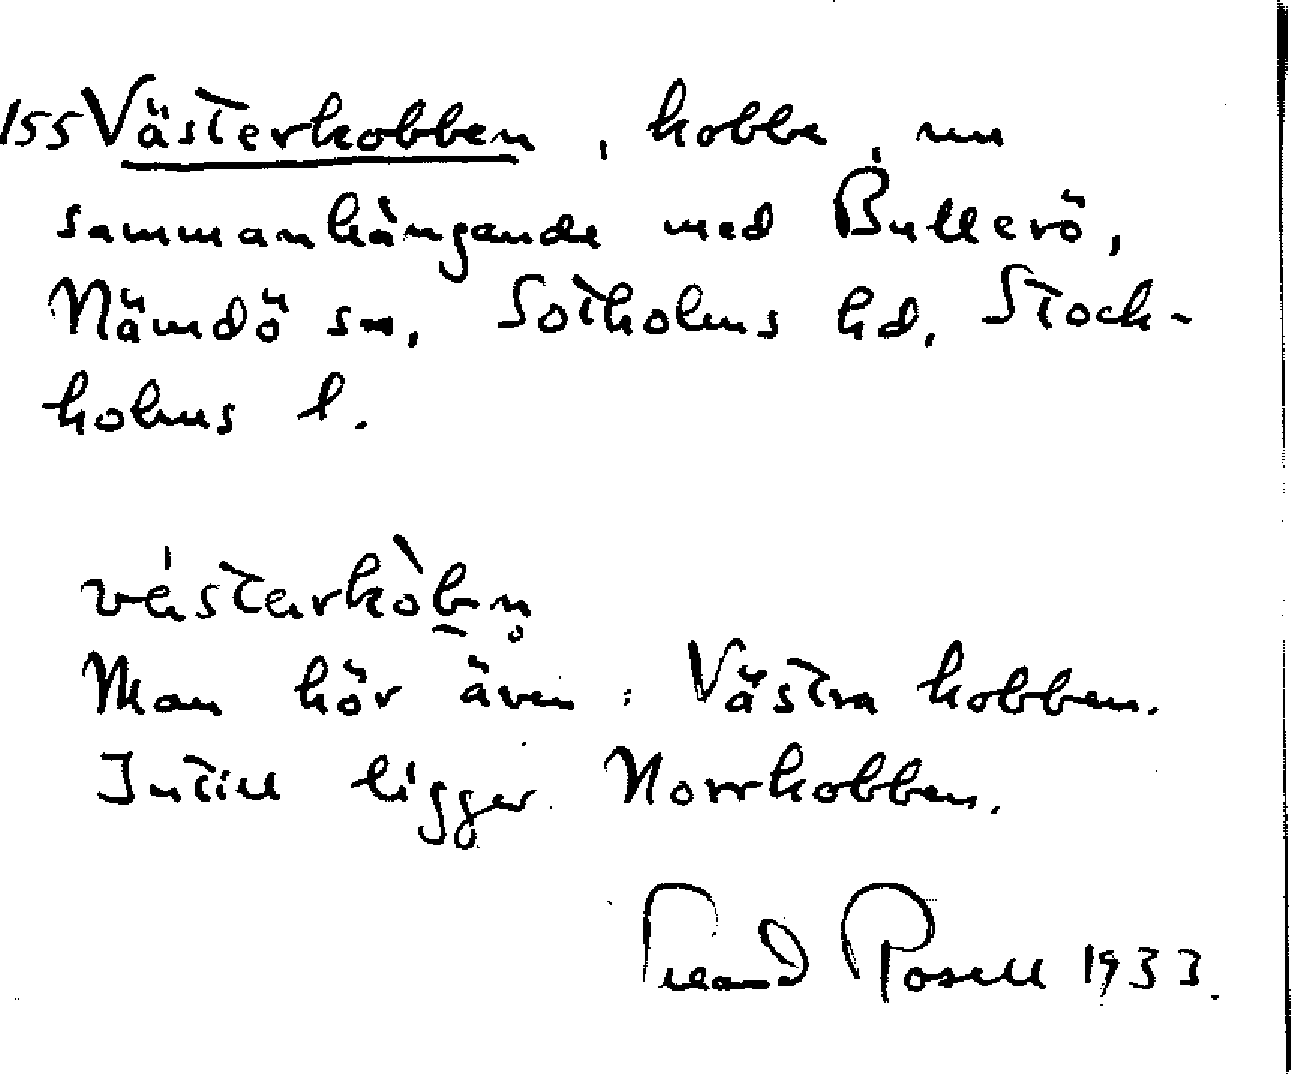 155 Västerkobben, kobbe, nu
sammanhängande med Bullerö,
Nämdö sn, Sotholms hd, Stock-
holms l.
västarkòbn̥
Man hör även: Västra kobben.
Intill ligger Norrkobben.
Erland Rosell 1933.